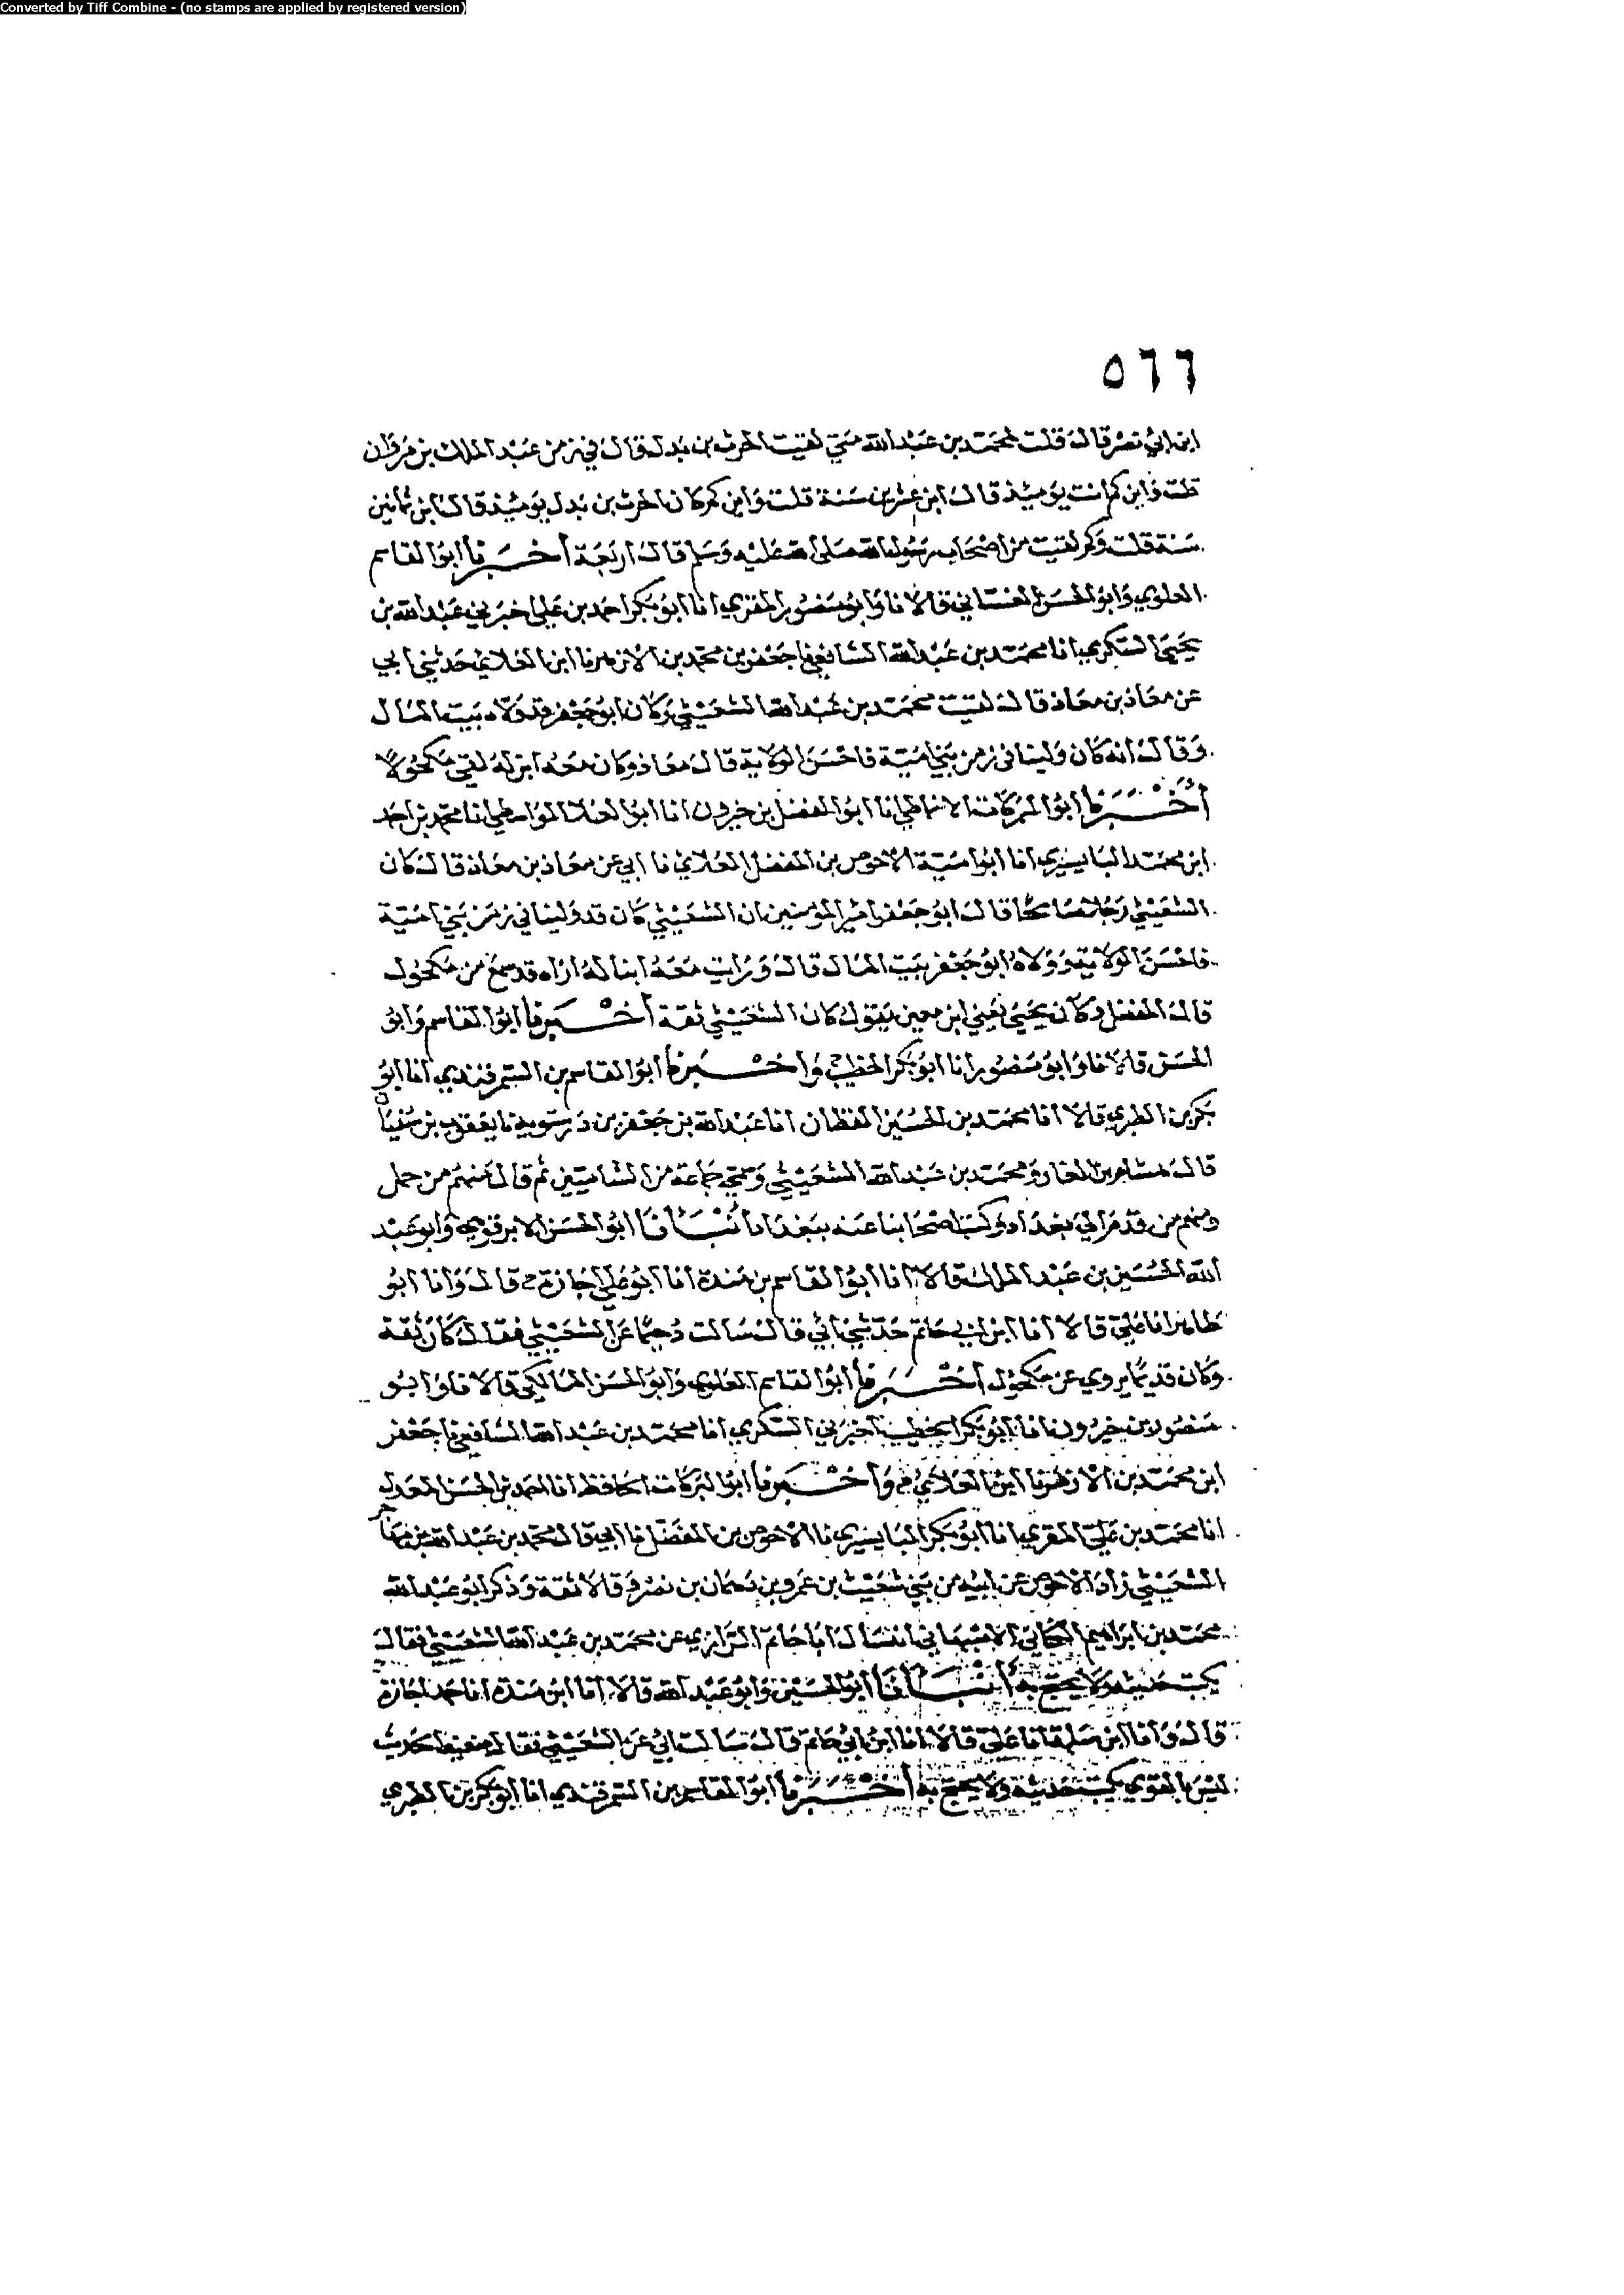 Converted by Tiff Combine - (no stamps are applied by registered version)
٥٦٦
ابن ابي نصر قال قلت لمحمد بن عبد الله متى لقيت الحرث بن بدل قال في زمن عبد الملك بن مروان
قلت وابن كم انت يوميذ قال ابن عشرين سنة قلت وابن كم كان الحرث بن بدل يوميذ قال ابن ثمانين
سنة قلت وكم لقيت من اصحاب رسول الله صلى الله عليه وسلم قال اربعة أخبرنا ابو القاسم
العلوي وابو الحسن الغساني قالا نا وابو منصور المقري انا ابو بكر احمد بن علي اخبرني عبد الله بن
يحيى السكري انا محمد بن عبد الله الشافعي نا جعفر بن محمد بن الازهر نا ابن الغلابي حدثني ابي
عن معاذ بن معاذ قال لقيت محمد بن عبد الله الشعيثي وكان ابو جعفر قد ولاه بيت المال
وقال انه كان ولينا في زمن بني امية فاحسن الولاية قال معاذ وكان معه ابن له لقي مكحولا
أخبرنا ابو البركات الانماطي انا ابو الفضل بن خيرون انا ابو العلا الواسطي انا محمد بن احمد
ابن محمد البابسيري انا ابو امية الاحوص بن المفضل الغلابي نا ابي عن معاذ بن معاذ قال كان
الشعيثي رجلا صالحا قال ابو جعفر امير المومنين ان الشعيثي كان قد ولينا في زمن بني امية
فاحسن الولاية وولاه ابو جعفر بيت المال قال ورايت معه ابنا له اراه قد سمع من مكحول
قال المفضل وكان يحيى يعني ابن معين يقول كان الشعيثي ثقة أخبرنا ابو القاسم وابو
الحسن قالا نا وابو منصور انا ابو بكر الخطيب وأخبرنا ابو القاسم بن السمرقندي انا ابو
بكر بن الطبري قالا انا محمد بن الحسين القطان انا عبد الله بن جعفر بن درستويه نا يعقوب بن سفيان
قال هشام بن الغاز ومحمد بن عبد الله الشعيثي وسمى جماعة من الشاميين ثم قال منهم من حمل
ومنهم من قدم الى بغداد وكتب اصحابنا عنه ببغداد أنبأنا ابو الحسن الابرقوهي وابو عبد
الله الحسين بن عبد الملك قالا انا ابو القاسم بن مندة انا ابو علي اجازة ح قال وانا ابو
طاهر انا علي قالا انا ابن ابي حاتم حدثني ابي قال سالت دحيما عن الشعيثي فقال كان ثقة
وكان قديما يروي عن مكحول أخبرنا ابو القاسم العلوي وابو الحسن المالكي قالا نا وابو
منصور بن خيرون انا ابو بكر الخطيب اخبرني السكري انا محمد بن عبد الله الشافعي نا جعفر
ابن محمد بن الازهر نا ابن الغلابي ح وأخبرنا ابو البركات الحافظ انا احمد بن الحسن المعدل
انا محمد بن علي المقري انا ابو بكر البابسيري نا الاحوص بن المفضل نا ابي قال محمد بن عبد الله بن مهاجر
الشعيثي زاد الاحوص عن ابيه من بني شعيث بن عمرو بن دهمان بن نصر وقالا ثقة وذكر ابو عبد الله
محمد بن ابراهيم الكتاني الاصبهاني انه سال ابا حاتم الرازي عن محمد بن عبد الله الشعيثي فقال
يكتب حديثه ولا يحتج به أنبأنا ابو الحسين وابو عبد الله قالا انا ابن مندة انا حمد اجازة
قال وانا ابن سلمة انا علي قالا انا ابن ابي حاتم قال سالت ابي عن الشعيثي فقال ضعيف الحديث
ليس بالقوي يكتب حديثه ولا يحتج به أخبرنا ابو القاسم بن السمرقندي انا ابو بكر بن الطبري